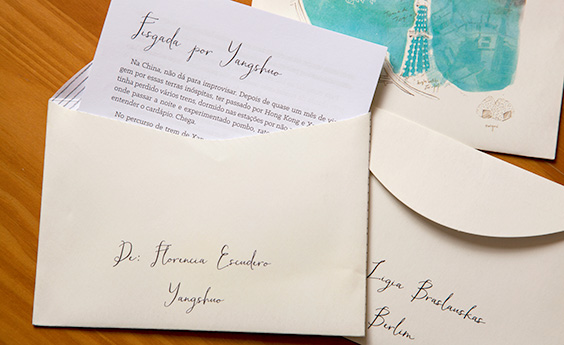 Fisgada por Yangshuo
Na China, não dá para improvisar. Depois de quase um mês de
gem por essas terras inóspitas, ter passado por Hong Kong e
tinha perdido vários trens, dormido nas estações por não
onde passar a noite e experimentado pombo,
entender o cardápio. Chega.
No percurso de trem de
De: Florencia Escudero
Yangshuo
Ligia Braslauskas
Berlim